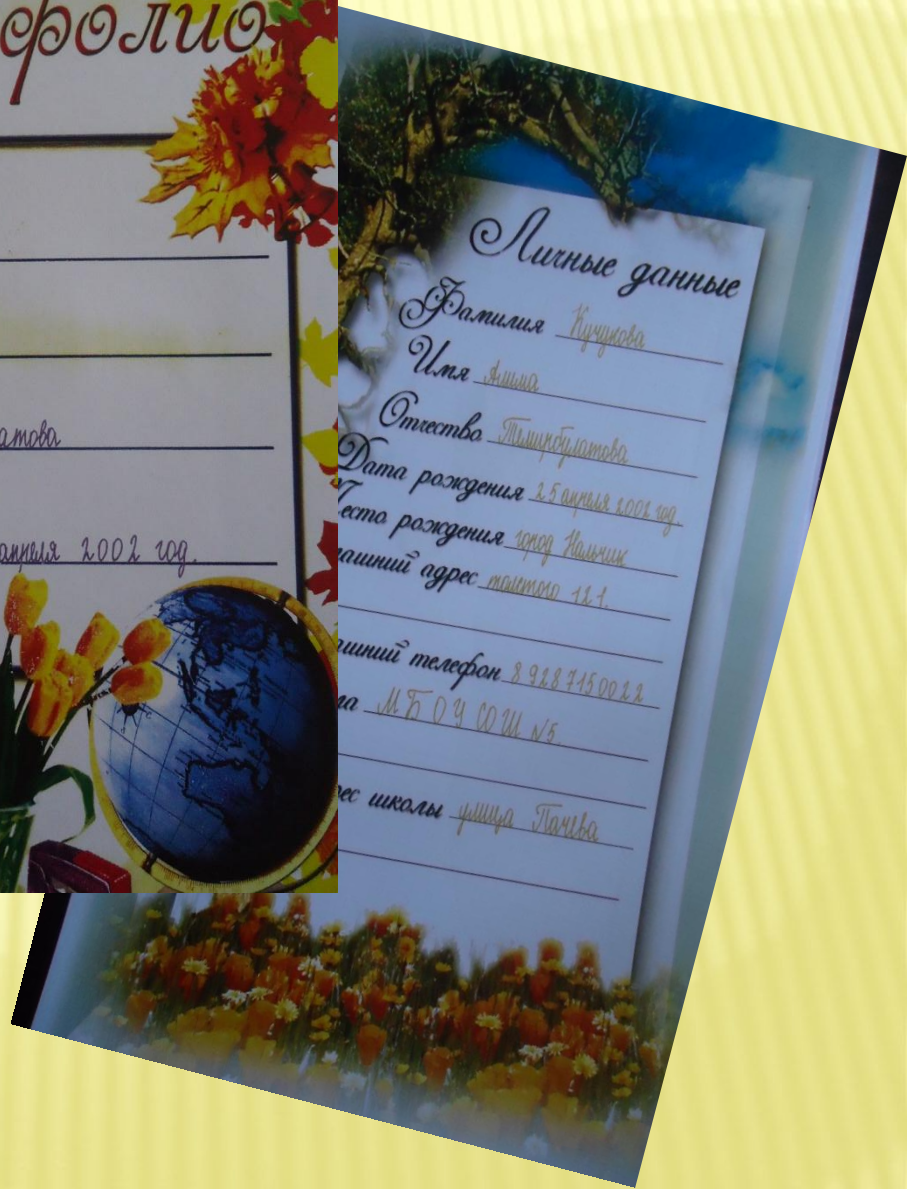 фолио
атова
апреля 2002 год.
Личные данные
Фамилия Кучукова
Имя Алима
Отчество Темирбулатова
Дата рождения 25 апреля 2002 год.
есто рождения город Нальчик
машний адрес толстого 121.
ашний телефон 89287150022
ла МБОУ СОШ №5.
рес школы улица Пачева